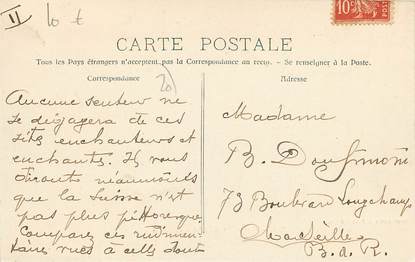 II
10 t
10
CARTE POSTALE
Tous les Pays étrangers n'acceptent pas la Correspondance au recto. - Se renseigner à la Poste.
Correspondance
20
Aucune senteur ne
se dégagera de ces
sites enchanteurs et
enchantés. Ils vous
diront néanmoins
que la Suisse n'est
pas plus pittoresque.
Comparez ces rudimen-
taires vues à celles dont
Adresse
Madame
B.
73 Boulevard Longchamp
Marseille
B. d. R.